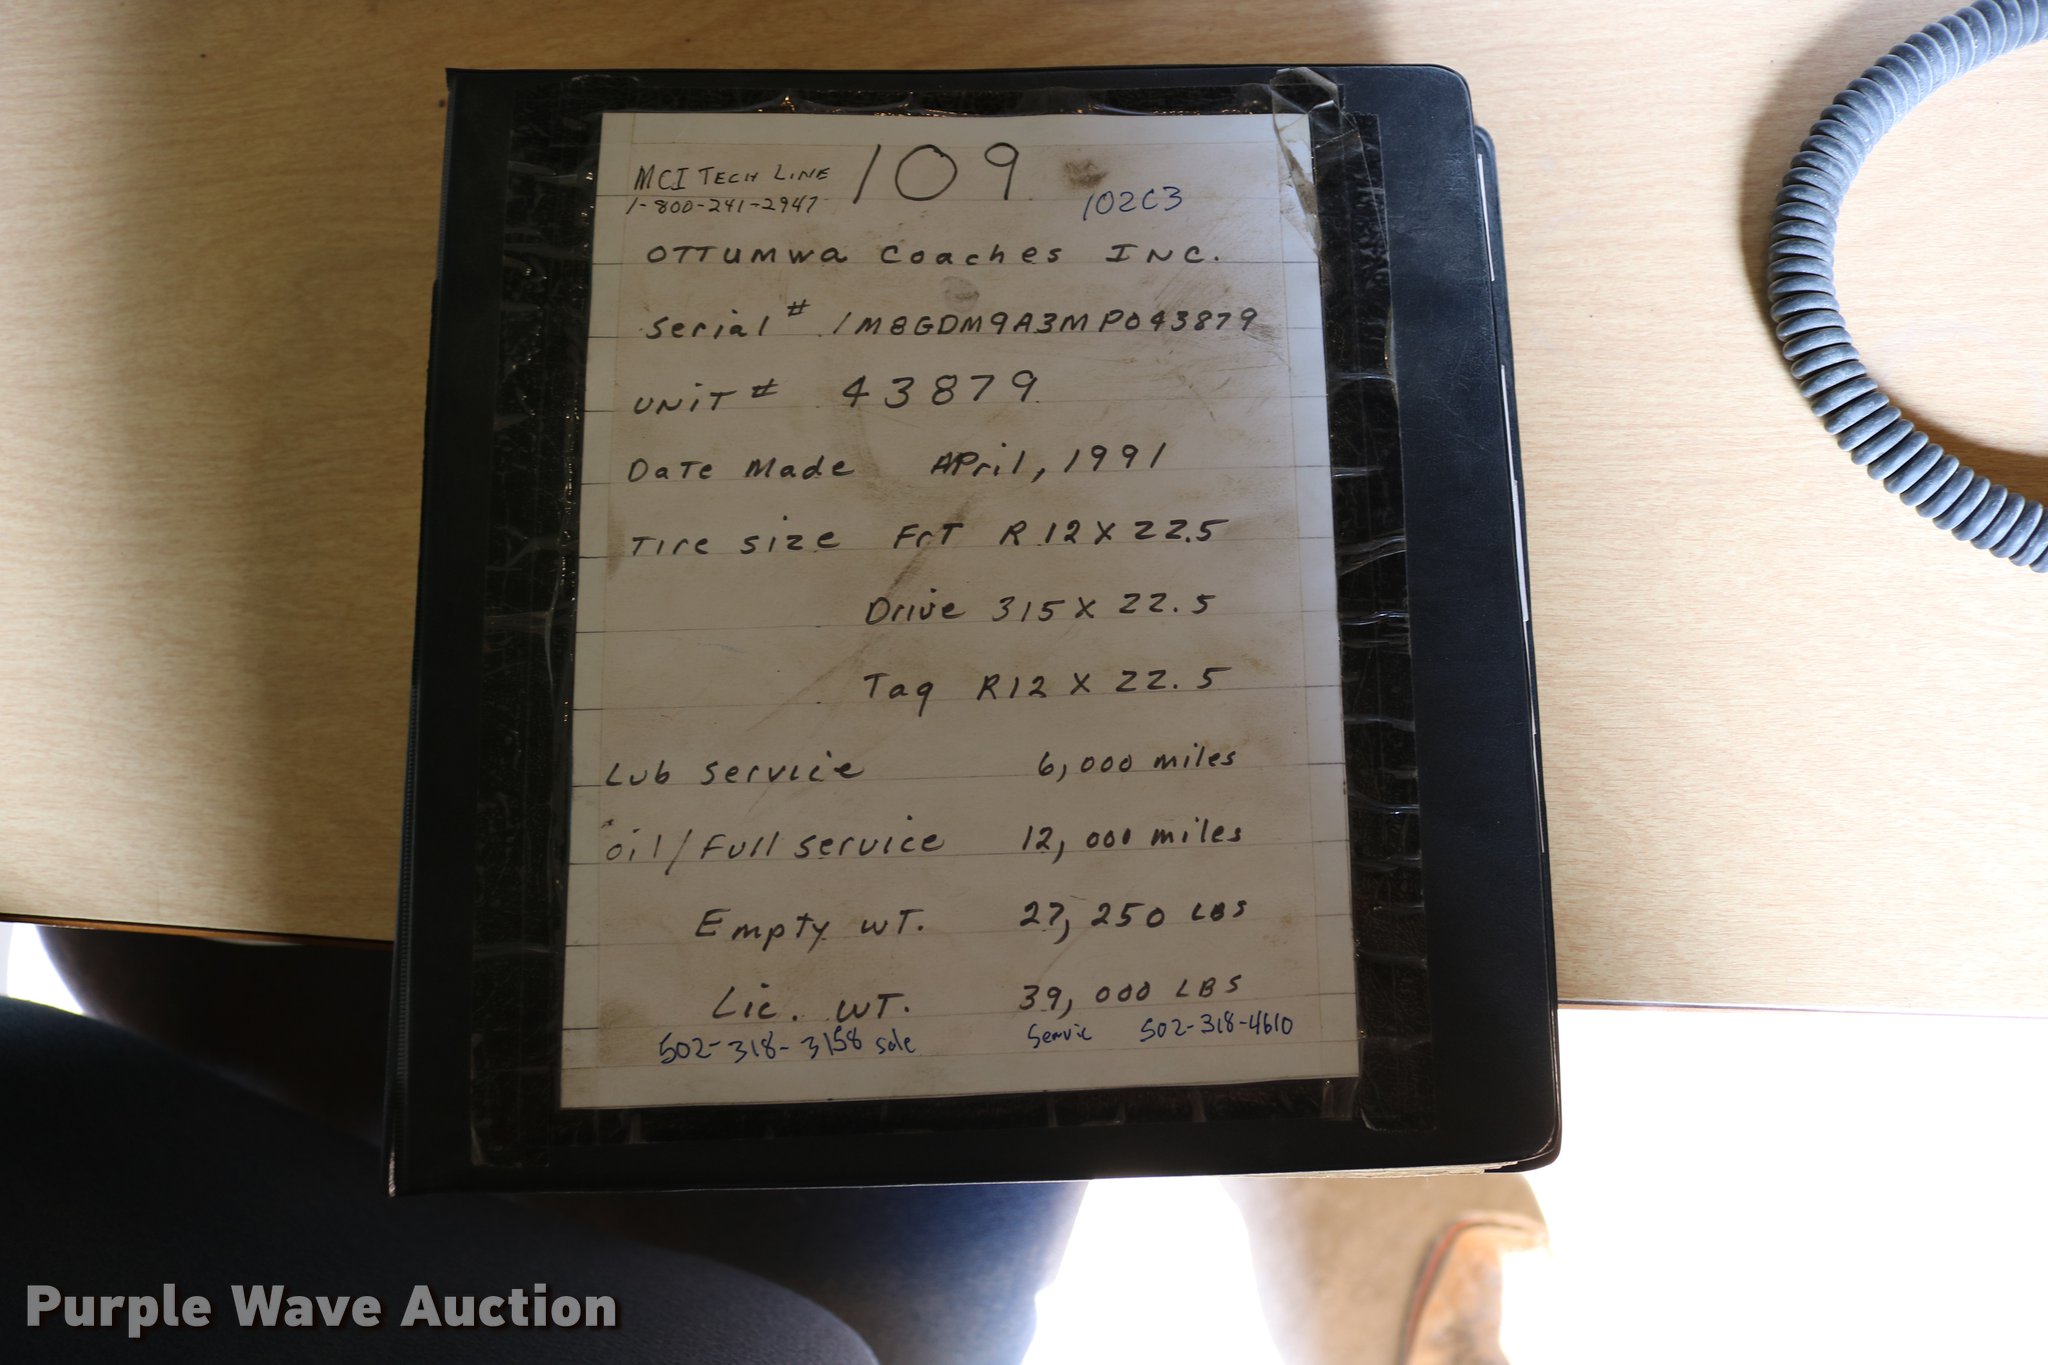 MCI TECH LINE 109
1-800-241-2947 102C3
OTTUMWA Coaches INC.
Serial # 1M8GDM9A3MP043879
UNIT # 43879
DATE Made APril, 1991
Tire size FrT R 12 X 22.5
Drive 315 X 22.5
Tag R12 X 22.5
Lub service 6,000 miles
oil/Full service 12,000 miles
Empty WT. 27,250 LBS
Lic. WT. 39,000 LBS
502-318-3158 sale Servic 502-318-4610
Purple Wave Auction